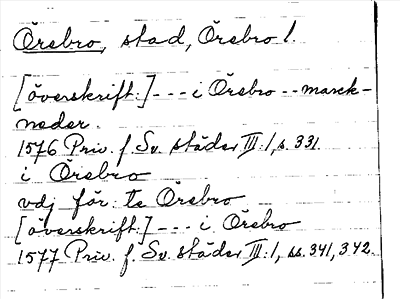 Örebro, stad, Örebro l.
[överskrift:] --- i Örebro -- marck-
neder.
1576 Priv. f. Sv. städer III:1, s. 331.
i Örebro
vdj för: te Örebro
[överskrift:] --- i Örebro
1577 Priv. f. Sv. städer III:1, ss. 341, 342.